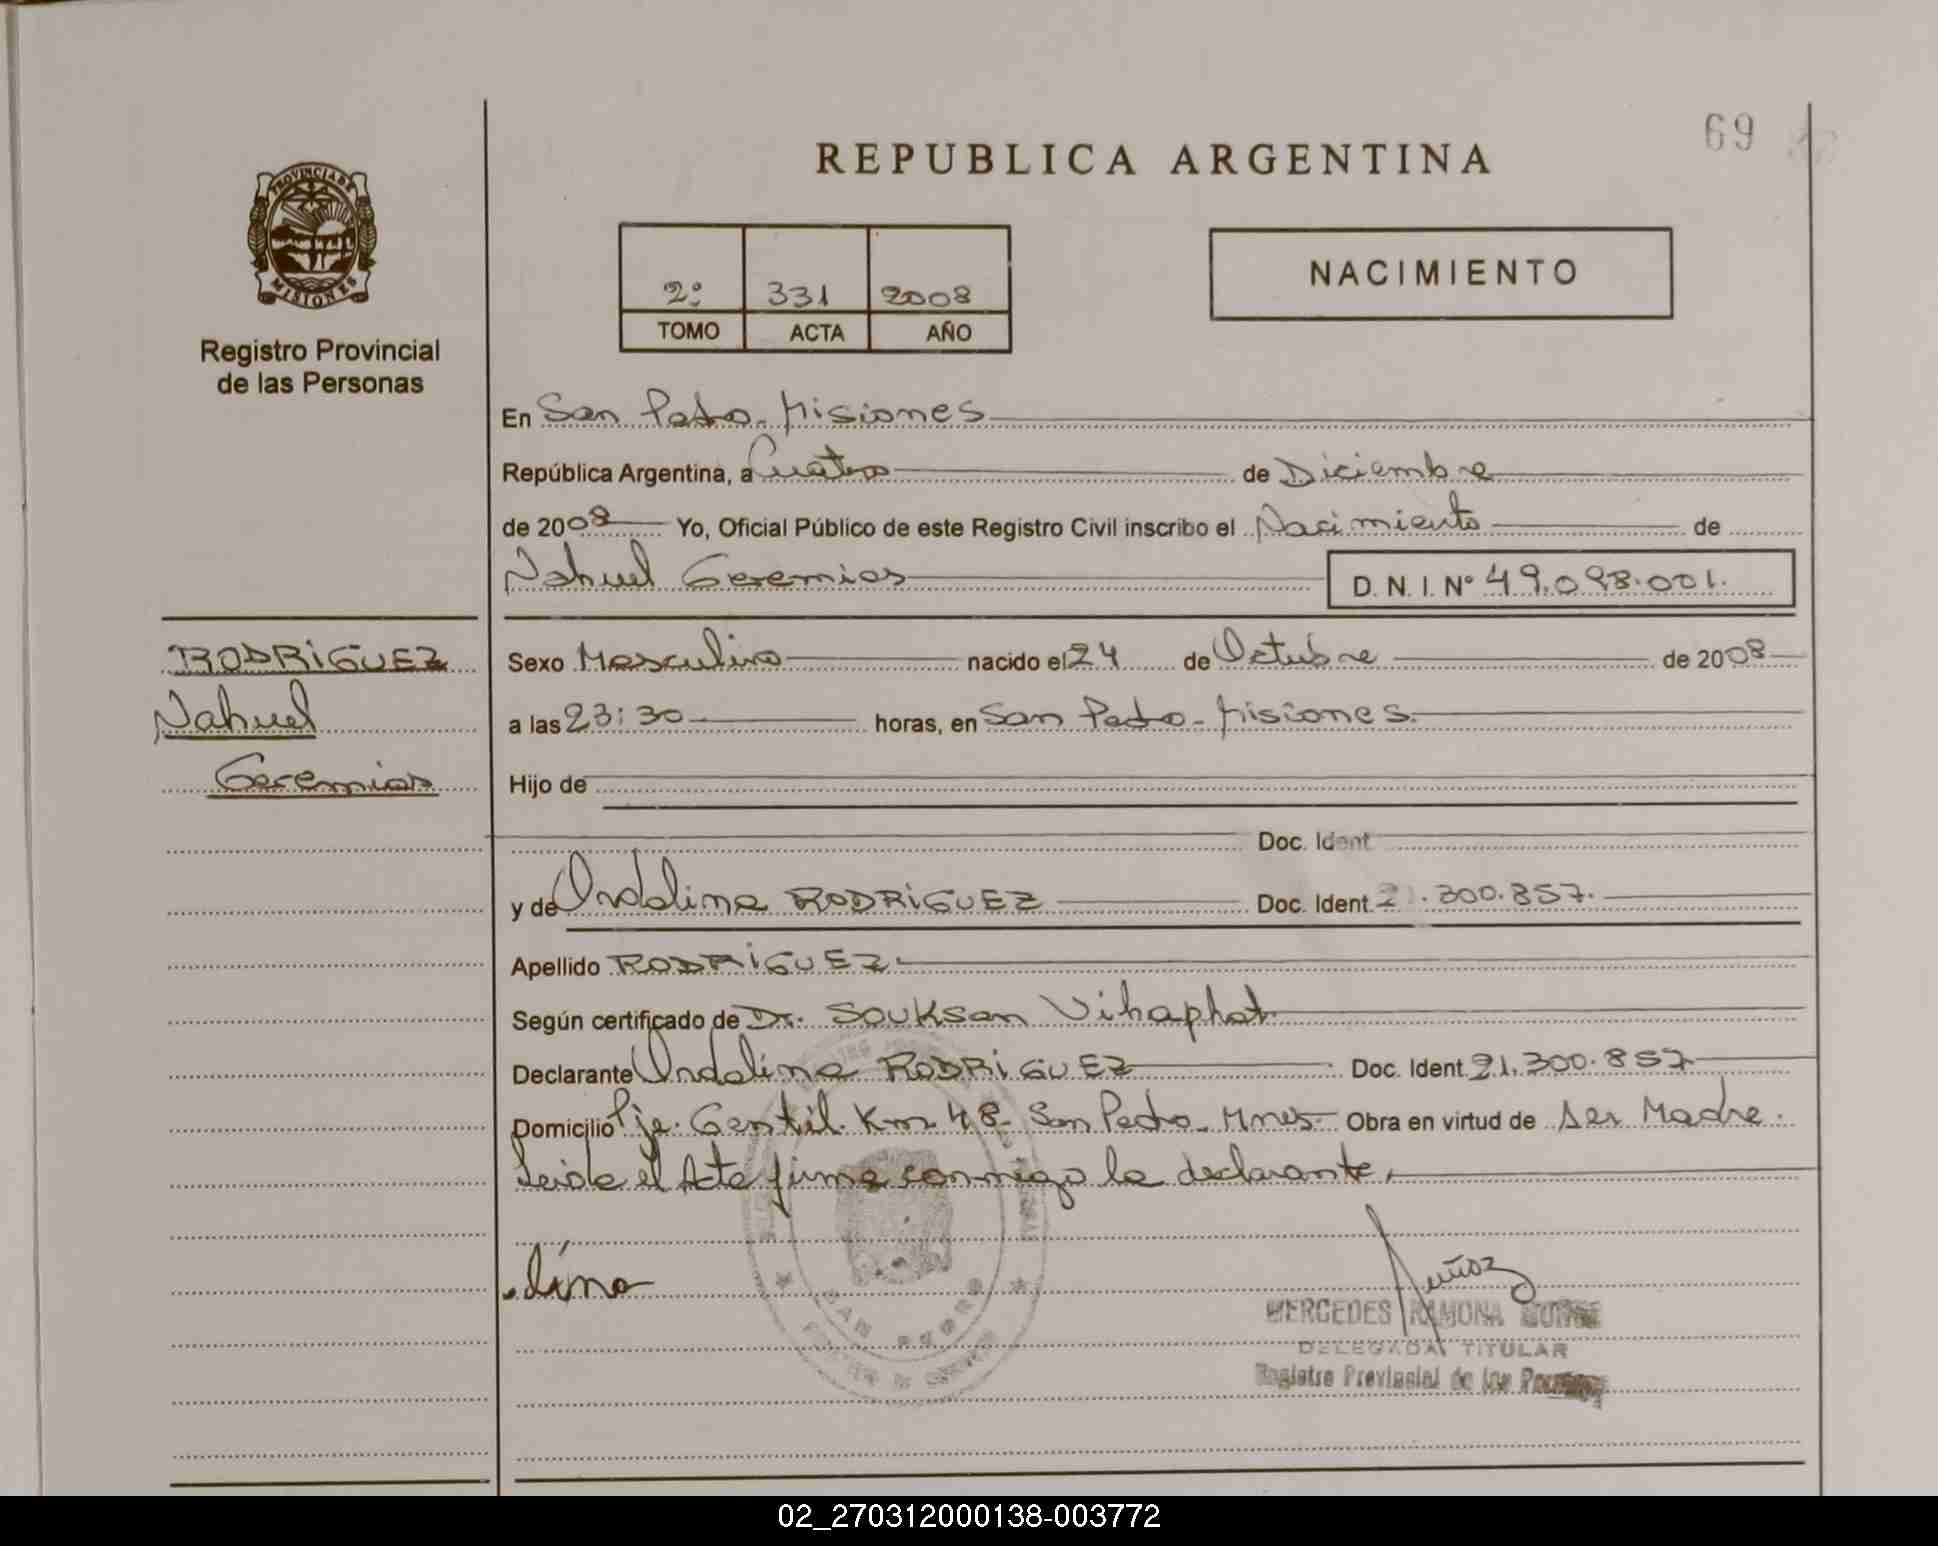 69
REPUBLICA ARGENTINA
PROVINCIA DE
MISIONES
Registro Provincial
de las Personas
2º 331 2008
TOMO ACTA AÑO
NACIMIENTO
En San Pedro - Misiones
República Argentina, a Cuatro de Diciembre
de 2008 Yo, Oficial Público de este Registro Civil inscribo el Nacimiento de
Nahuel Geremias D. N. I. Nº 49.098.001.
RODRiGUEZ
Nahuel
Geremias
Sexo Masculino nacido el 24 de Octubre de 2008
a las 23:30 horas, en San Pedro - Misiones.
Hijo de
Doc. Ident
y de Ordalina RODRiGUEZ Doc. Ident. 21.300.857.
Apellido RODRiGUEZ.
Según certificado de Dr. Souksan Vihaphat
Declarante Ordalina RODRiGUEZ Doc. Ident. 21.300.857
Domicilio Pje. Gentil. Km 48 - San Pedro - Mnes. Obra en virtud de ser Madre.
Leida el Acta firma conmigo la declarante.
lína
Muñoz
MERCEDES RAMONA MUÑOZ
DELEGADA TITULAR
Registro Provincial de las Personas
SAN PEDRO
02_270312000138-003772